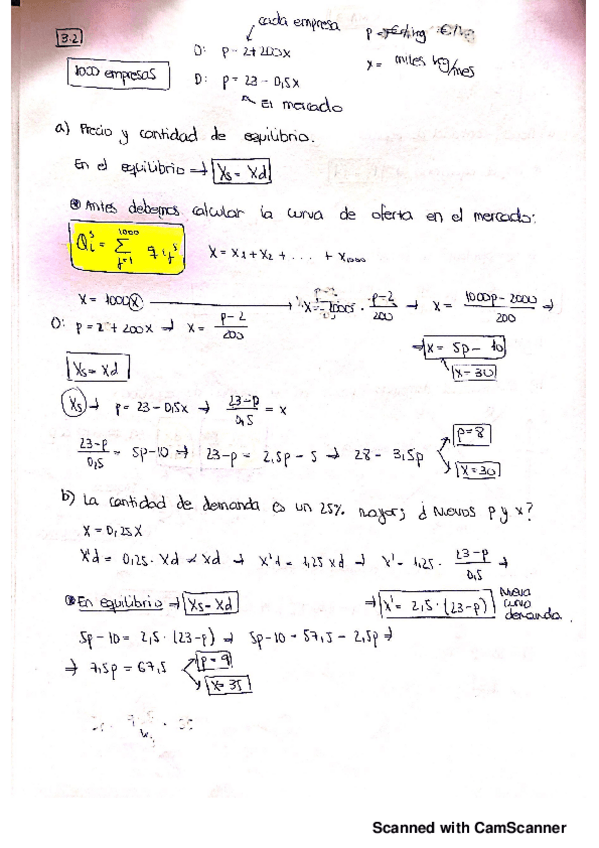 3.2
cada empresa
1000 empresas
O: p = 2 + 200x
D: p = 23 - 0,5x
El mercado
p =
x = miles kg/mes
a) Precio y cantidad de equilibrio.
En el equilibrio → Xs = Xd
Antes debemos calcular la curva de oferta en el mercado:
Qiˢ = Σ qijˢ
1000
j=1
x = x1 + x2 + .... + x1000
x = 1000x → x = 1000 · p-2/200 → x = 1000p - 2000/200 ⇒
O: p = 2 + 200x → x = p-2/200
→ x = 5p - 10
x = 30
Xs = Xd
Xs → p = 23 - 0,5x → 23-p/0,5 = x
23-p/0,5 = 5p-10 → 23-p = 2,5p - 5 → 28 - 3,5p
p = 8
x = 30
b) La cantidad de demanda es un 25% mayor; ¿Nuevos p y x?
x = 0,25x
X'd = 0,25 · Xd + Xd → X'd = 1,25 Xd → X' = 1,25 · 23-p/0,5 →
En equilibrio → Xs = Xd
→ X' = 2,5 · (23-p)
Nueva
curva
demanda
5p - 10 = 2,5 · (23-p) → 5p - 10 = 57,5 - 2,5p →
→ 7,5p = 67,5
p = 9
x = 35
Scanned with CamScanner